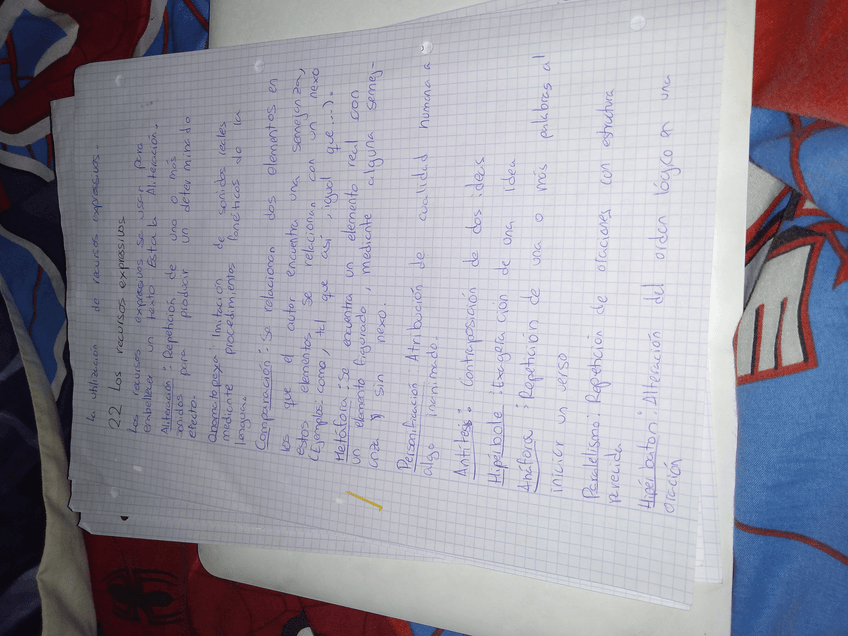 la utilización de recursos expresivos.
2.2 Los recursos expresivos
Los recursos expresivos se usan para
embellecer un texto. Están la Aliteración.
Aliteración: Repetición de uno o más
sonidos para producir un determinado
efecto.
Onomatopeya Imitación de sonidos reales
mediante procedimientos fonéticos de la
lengua.
Comparación: Se relacionan dos elementos en
los que el autor encuentra una semejanza,
estos elementos se relacionan con un nexo
(Ejemplos como, tal que así, igual que...).
Metáfora: Se encuentra un elemento real con
un elemento figurado, mediante alguna semej-
anza y sin nexo.
Personificación Atribución de cualidad humana a
algo inanimado.
Antítesis: Contraposición de dos ideas
Hipérbole: Exageración de una idea
Anáfora: Repetición de una o más palabras al
iniciar un verso
Paralelismo: Repetición de oraciones con estructura
parecida
Hipérbaton: Alteración del orden lógico en una
oración